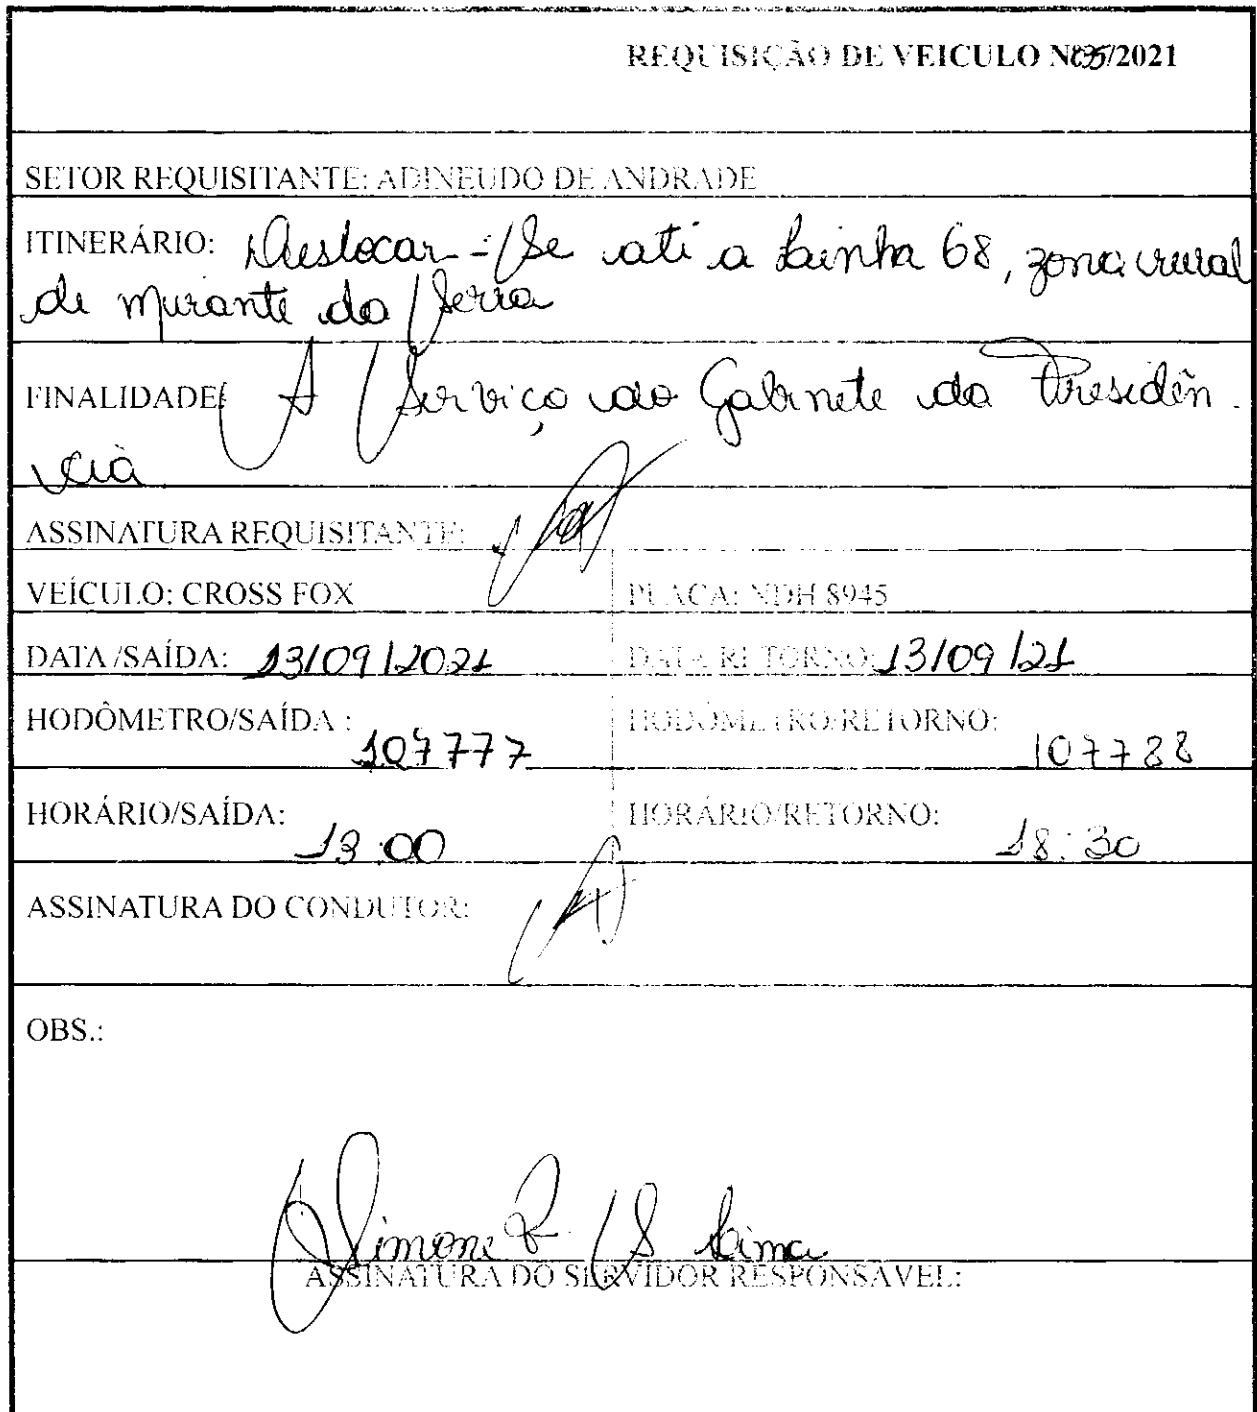 REQUISIÇÃO DE VEICULO Nº35/2021
SETOR REQUISITANTE: ADINEUDO DE ANDRADE
ITINERÁRIO: Deslocar-Se até a Linha 68, zona rural
de mirante da Serra
FINALIDADE: A Serviço do Gabinete da Presidên-
cia
ASSINATURA REQUISITANTE:
VEÍCULO: CROSS FOX PLACA: NDH 8945
DATA/SAÍDA: 13/09/2021 DATA RETORNO: 13/09/21
HODÔMETRO/SAÍDA : 107777 HODÔMETRO/RETORNO: 107788
HORÁRIO/SAÍDA: 13:00 HORÁRIO/RETORNO: 18:30
ASSINATURA DO CONDUTOR:
OBS.:
Simone R. S Lima
ASSINATURA DO SERVIDOR RESPONSAVEL: